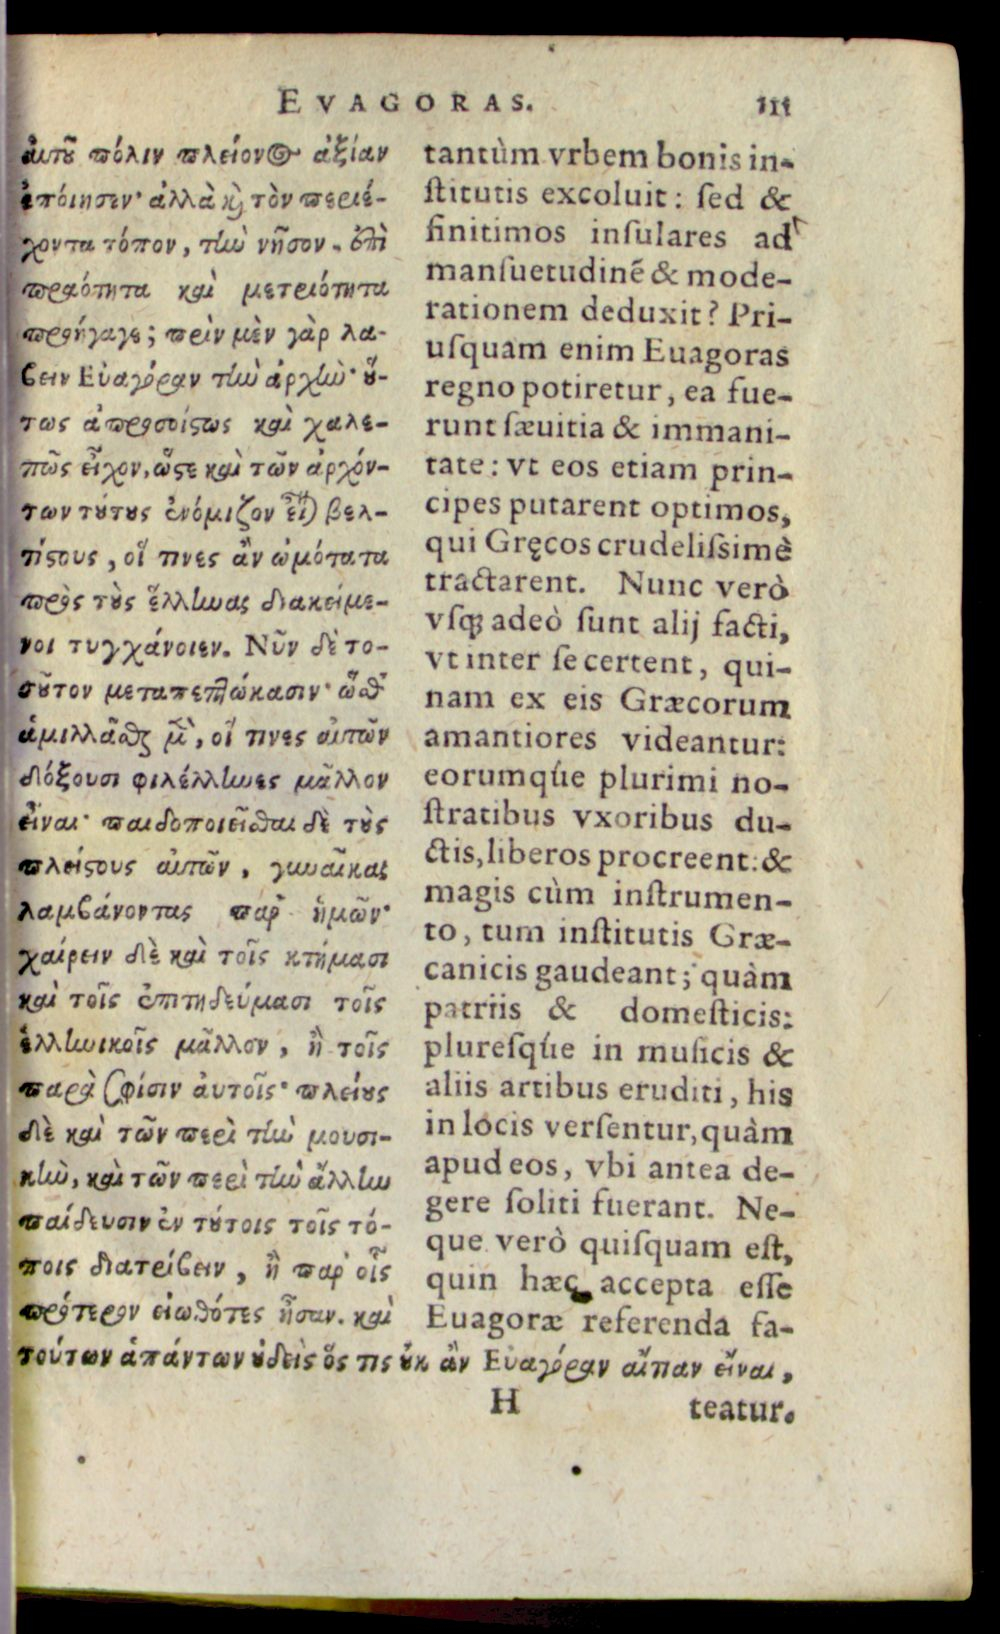 EVAGORAS. 111
αὑτοῦ πόλιν πλείονος ἀξίαν
ἐποίησεν· ἀλλὰ καὶ τὸν περιέ-
χοντα τόπον, τὴν νῆσον. ἐπὶ
πραότητα καὶ μετριότητα
προήγαγε; πρὶν μὲν γὰρ λα-
βεῖν Εὐαγόραν τὴν ἀρχὴν· οὕ-
τως ἀπροσοίστως καὶ χαλε-
πῶς εἶχον, ὥστε καὶ τῶν ἀρχόν-
των τούτους ἐνόμιζον εἶναι βελ-
τίστους, οἵ τινες ἂν ὠμότατα
πρὸς τοὺς ἕλληνας διακείμε-
νοι τυγχάνοιεν. Νῦν δὲ το-
σοῦτον μεταπεπτώκασιν· ὥσθ'
ἁμιλλᾶσθαι μὲν, οἵ τινες αὐτῶν
δόξουσι φιλέλληνες μᾶλλον
εἶναι· παιδοποιεῖσθαι δὲ τοὺς
πλείστους αὐτῶν, γυναῖκας
λαμβάνοντας παρ' ἡμῶν·
χαίρειν δὲ καὶ τοῖς κτήμασι
καὶ τοῖς ἐπιτηδεύμασι τοῖς
ἑλληνικοῖς μᾶλλον, ἢ τοῖς
παρὰ σφίσιν αὐτοῖς· πλείους
δὲ καὶ τῶν περὶ τὴν μουσι-
κὴν, καὶ τῶν περὶ τὴν ἄλλην
παίδευσιν ἐν τούτοις τοῖς τό-
ποις διατρίβειν, ἢ παρ' οἷς
πρότερον εἰωθότες ἦσαν. καὶ
τούτων ἁπάντων οὐδεὶς ὅς τις οὐκ ἂν Εὐαγόραν αἴτιον εἶναι,
tantùm vrbem bonis in-
ſtitutis excoluit: ſed &
finitimos inſulares ad
manſuetudinẽ & mode-
rationem deduxit? Pri-
uſquam enim Euagoras
regno potiretur, ea fue-
runt ſæuitia & immani-
tate: vt eos etiam prin-
cipes putarent optimos,
qui Gręcos crudeliſsimè
tractarent. Nunc verò
vſq; adeò ſunt alij facti,
vt inter ſe certent, qui-
nam ex eis Græcorum
amantiores videantur:
eorumqúe plurimi no-
ſtratibus vxoribus du-
ctis, liberos procreent: &
magis cùm inſtrumen-
to, tum inſtitutis Græ-
canicis gaudeant; quàm
patriis & domeſticis:
pluresqúe in muſicis &
aliis artibus eruditi, his
in locis verſentur, quàm
apud eos, vbi antea de-
gere ſoliti fuerant. Ne-
que verò quiſquam eſt,
quin hæc accepta eſſe
Euagoræ referenda fa-
H teatur.